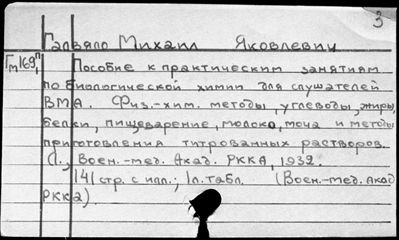 3
Гальвяло Михаил Яковлевич
Гм169п/1 Пособие к практическим занятиям
по биологической химии для слушателей
ВМА. Физ.-хим. методы, углеводы, жиры,
белки, пищеварение, молоко, моча и методы
приготовления титрованных растворов.
Л., Воен.-мед. Акад. РККА, 1932.
141 стр. с илл.; 1 л. табл. (Воен.-мед. Акад
РККА)